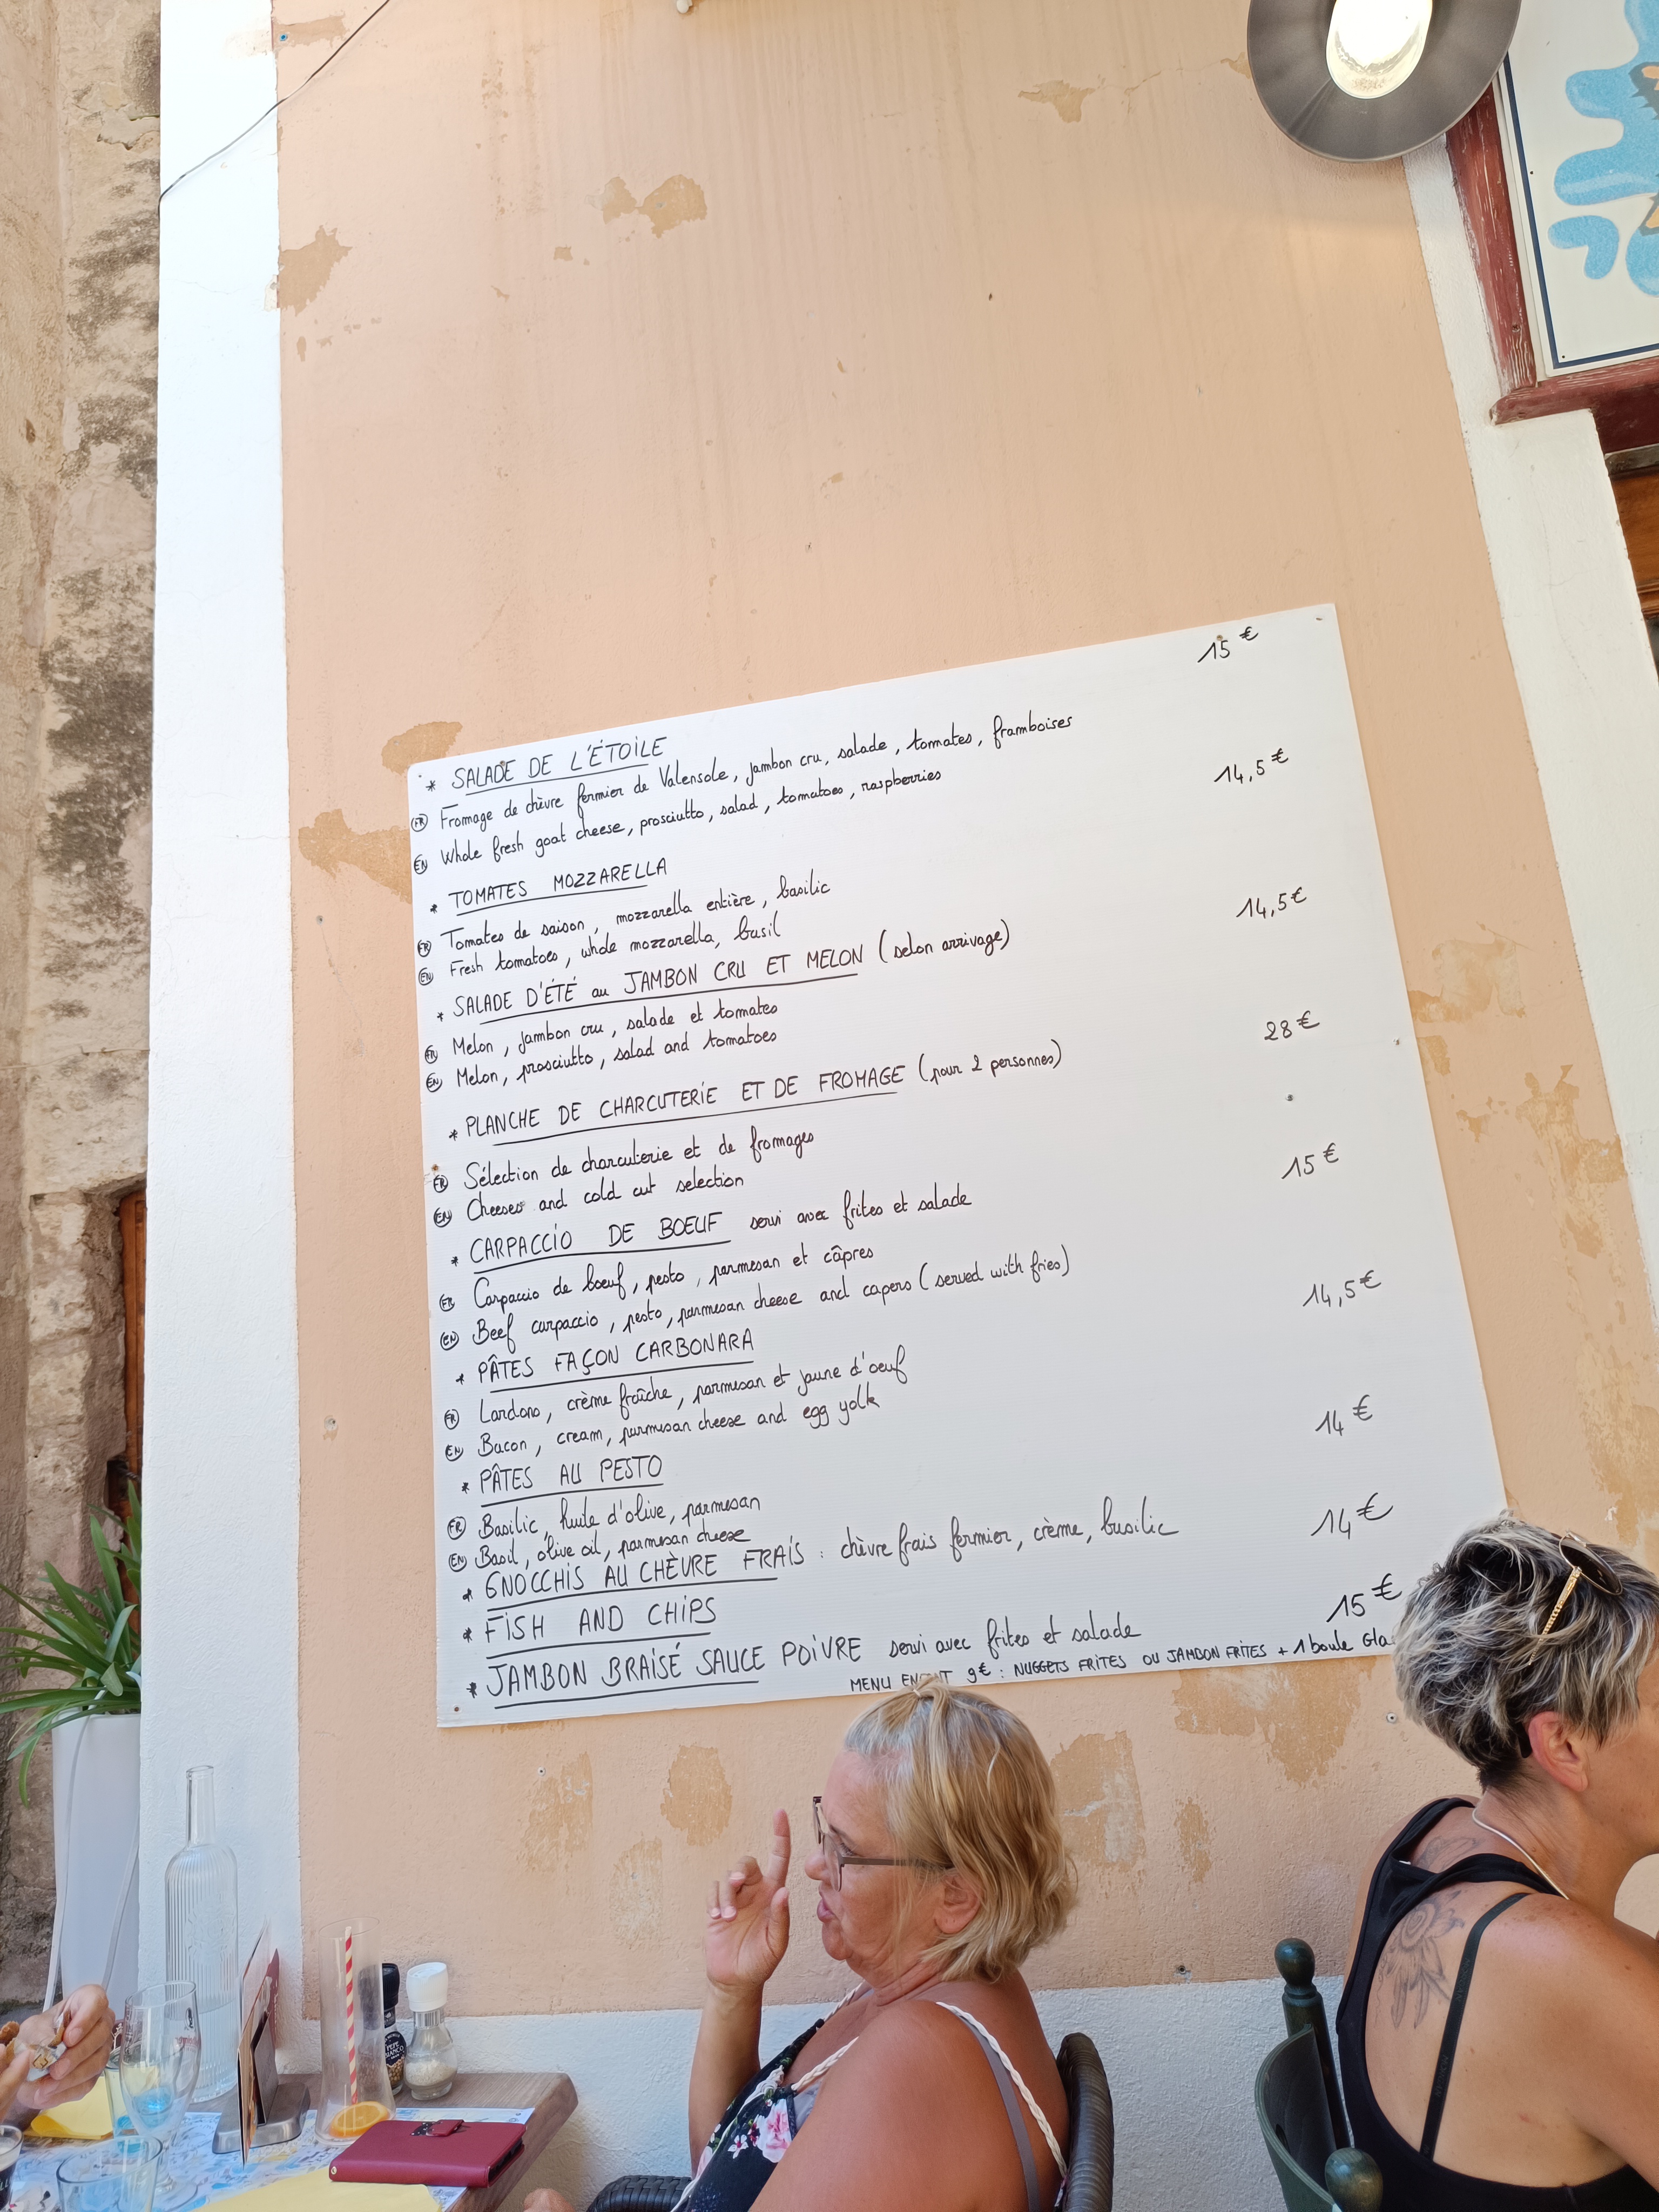 * SALADE DE L'ÉTOILE 15€
FR Fromage de chèvre fermier de Valensole, jambon cru, salade, tomates, framboises
EN Whole fresh goat cheese, prosciutto, salad, tomatoes, raspberries
* TOMATES MOZZARELLA 14,5€
FR Tomates de saison, mozzarella entière, basilic
EN Fresh tomatoes, whole mozzarella, basil
* SALADE D'ÉTÉ au JAMBON CRU ET MELON (selon arrivage) 14,5€
FR Melon, jambon cru, salade et tomates
EN Melon, prosciutto, salad and tomatoes
* PLANCHE DE CHARCUTERIE ET DE FROMAGE (pour 2 personnes) 28€
FR Sélection de charcuterie et de fromages
EN Cheeses and cold cut selection
* CARPACCIO DE BOEUF servi avec frites et salade 15€
FR Carpaccio de boeuf, pesto, parmesan et câpres
EN Beef carpaccio, pesto, parmesan cheese and capers (served with fries)
* PÂTES FAÇON CARBONARA 14,5€
FR Lardons, crème fraîche, parmesan et jaune d'oeuf
EN Bacon, cream, parmesan cheese and egg yolk
* PÂTES AU PESTO 14€
FR Basilic, huile d'olive, parmesan
EN Basil, olive oil, parmesan cheese
* GNOCCHIS AU CHÈVRE FRAIS : chèvre frais fermier, crème, basilic 14€
* FISH AND CHIPS
* JAMBON BRAISÉ SAUCE POIVRE servi avec frites et salade 15€
MENU 9€ : NUGGETS FRITES OU JAMBON FRITES + 1 boule